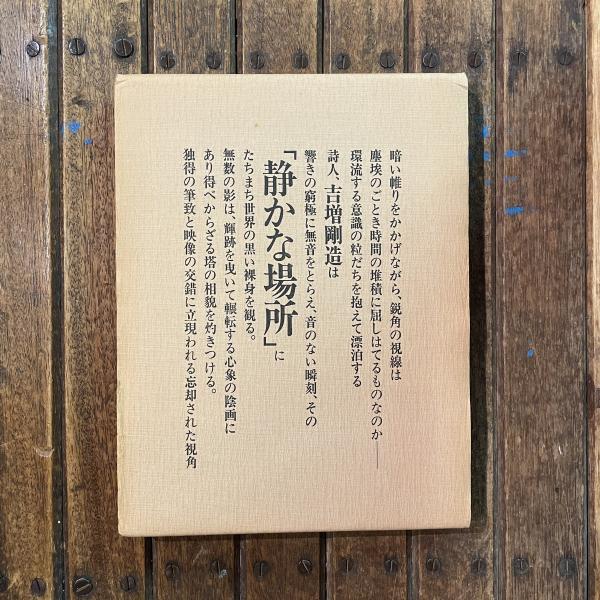 暗い帷りをかかげながら、鋭角の視線は
塵埃のごとき時間の堆積に屈しはてるものなのか――
環流する意識の粒だちを抱えて漂泊する
詩人、吉増剛造は
響きの窮極に無音をとらえ、音のない瞬刻、その
「静かな場所」に
たちまち世界の黒い裸身を観る。
無数の影は、輝跡を曳いて輾転する心象の陰画に
あり得べからざる塔の相貌を灼きつける。
独得の筆致と映像の交錯に立現われる忘却された視角